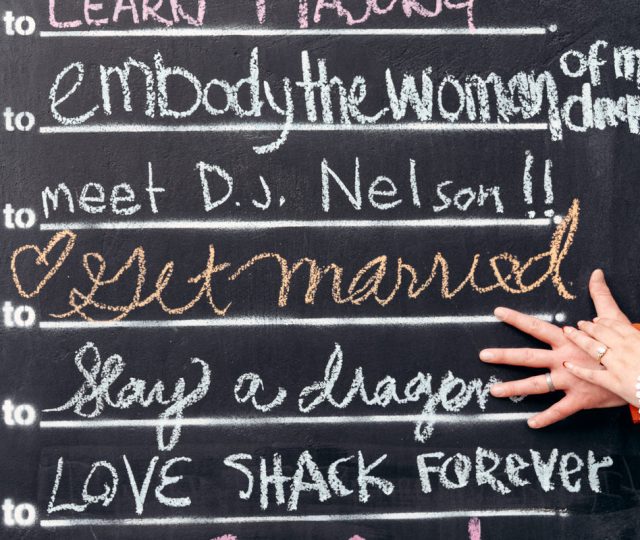 to LEARN
to embody the woman of m
to meet D.J. Nelson!!
to Get married
to Slay a dragon
to LOVE SHACK FOREVER